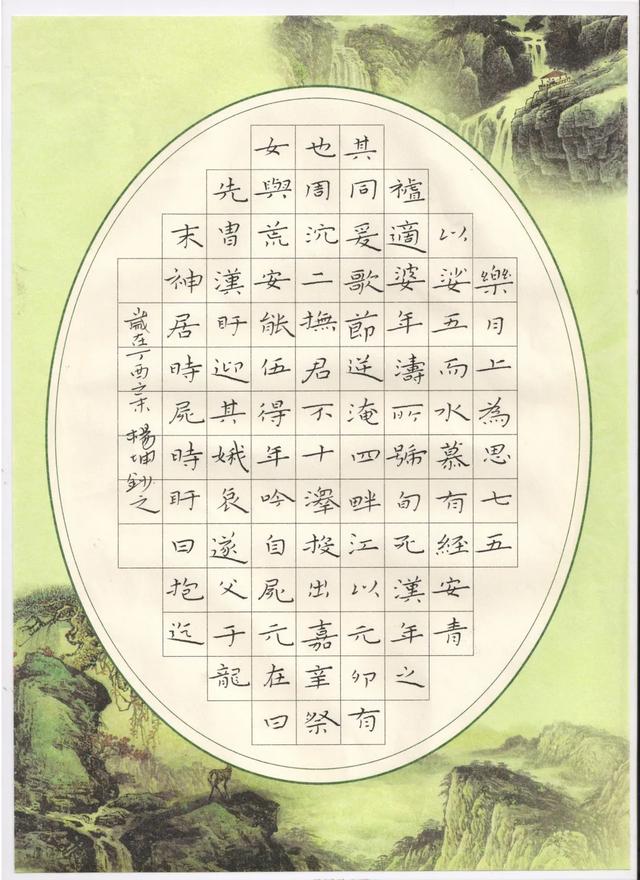 女也其
先與周同
末冑荒沉爰適以
神漢安二歌婆娑樂
居盱能撫節年五月
時迎伍君逆濤而上
屍其得不淹所水為
時娥年十四號慕思
盱哀吟澤畔旬有七
曰遂自投江死經五
抱父屍出以漢安
迄于元嘉元年青
龍在辛卯之
曰祭有
歲在丁酉 楊坤鈔之